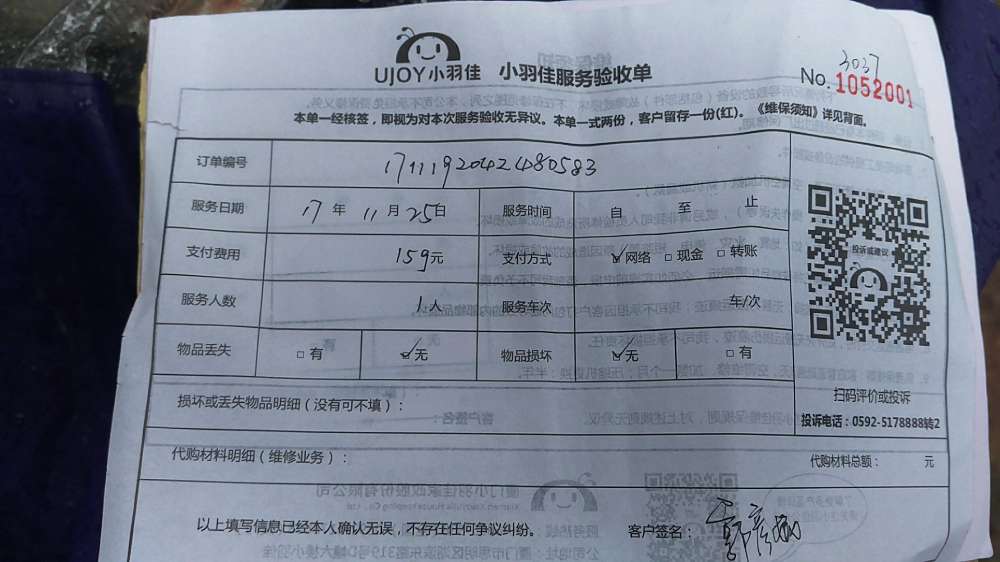 UJOY小羽佳 小羽佳服务验收单
3037
No. 1052001
本单一经核签，即视为对本次服务验收无异议。本单一式两份，客户留存一份(红)。《维保须知》详见背面。
订单编号 171119204248 0583
服务日期 17 年 11 月 25 日 服务时间 自 至 止
支付费用 159元 支付方式 ☑网络 □现金 □转账
服务人数 1人 服务车次 车/次
物品丢失 □有 ☑无 物品损坏 ☑无 □有
投诉或建议
扫码评价或投诉
投诉电话：0592-5178888转2
损坏或丢失物品明细（没有可不填）：
代购材料明细（维修业务）： 代购材料总额： 元
以上填写信息已经本人确认无误，不存在任何争议纠纷。 客户签名：